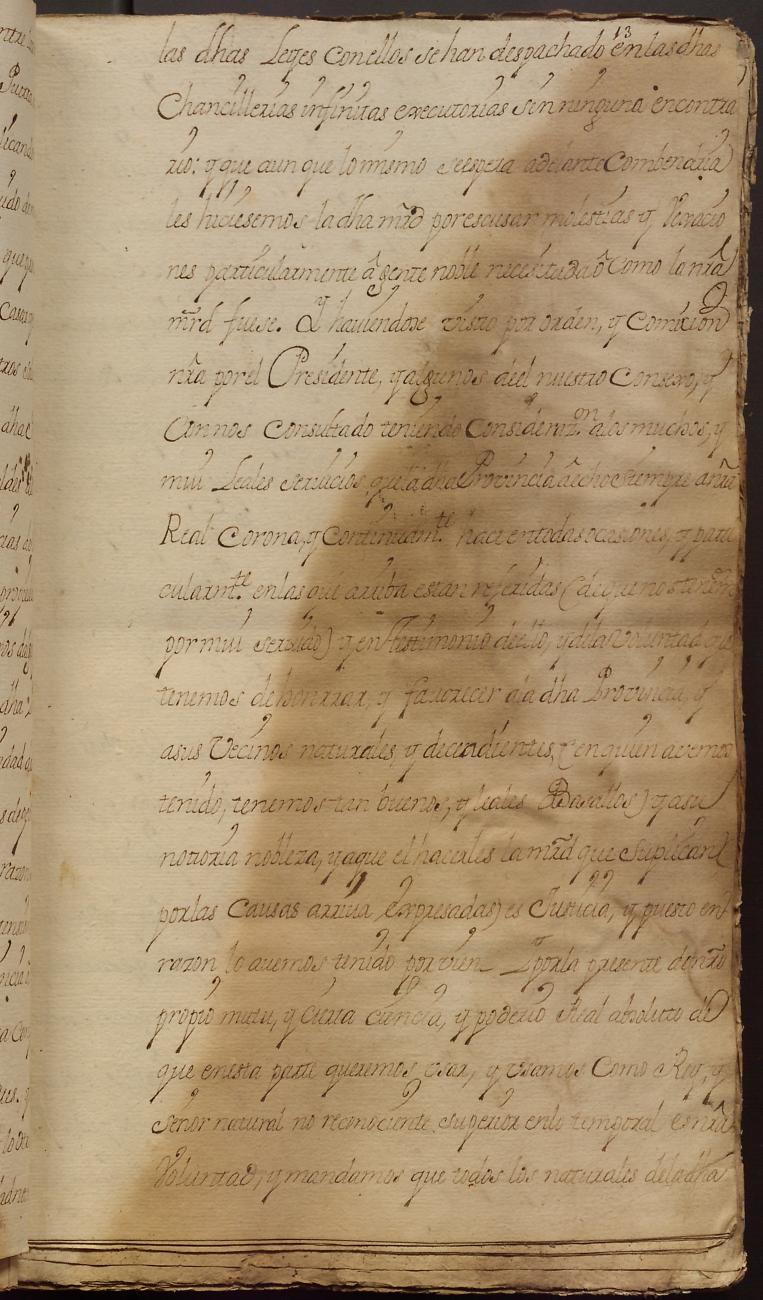 13
las dhas Leyes con ellos se han despachado en las dhas
Chancillerias infinitas executorias sin ninguna en contra
rio: y que aun que lo mismo se espera adelante Combendria
les hiciesemos la dha mrd por escusar molestias y Vexacio
nes particularmente â gente noble necesitada ô como la nra
mrd fuese. Y haviendose visto por orden, y Comision
nra por el Presidente, y algunos de el nuestro Consexo, y
Con nos Consultado teniendo Considerazon. a los muchos, y
mui Leales servicios, que la dha Provincia a echo siempre a nra
Real Corona, y Continuamte. hace en todas ocasiones, y parti
cularmte. en las que arriba estan referidas (de que nos tenemos
por mui servido) y en testimonio de ello, y dela Voluntad que
tenemos de honrrar, y favorecer a la dha Provincia, y
a sus Vecinos naturales, y decendientes, (en quien avemos
tenido, tenemos tan buenos, y leales Basallos) y a su
notoria nobleza, y a que el hacerles la mrd que suplican
por las Causas arriva expresadas) es Justicia, y puesto en
razon lo avemos tenido por vien Y por la presente de nro
propio mutu, y cierta ciencia, y poderio Real absoluto de
que en esta parte queremos usar, y usamos Como a Rey, y
Señor natural no reconociente superior en lo temporal es nra
Voluntad, y mandamos que todos los naturales dela dha